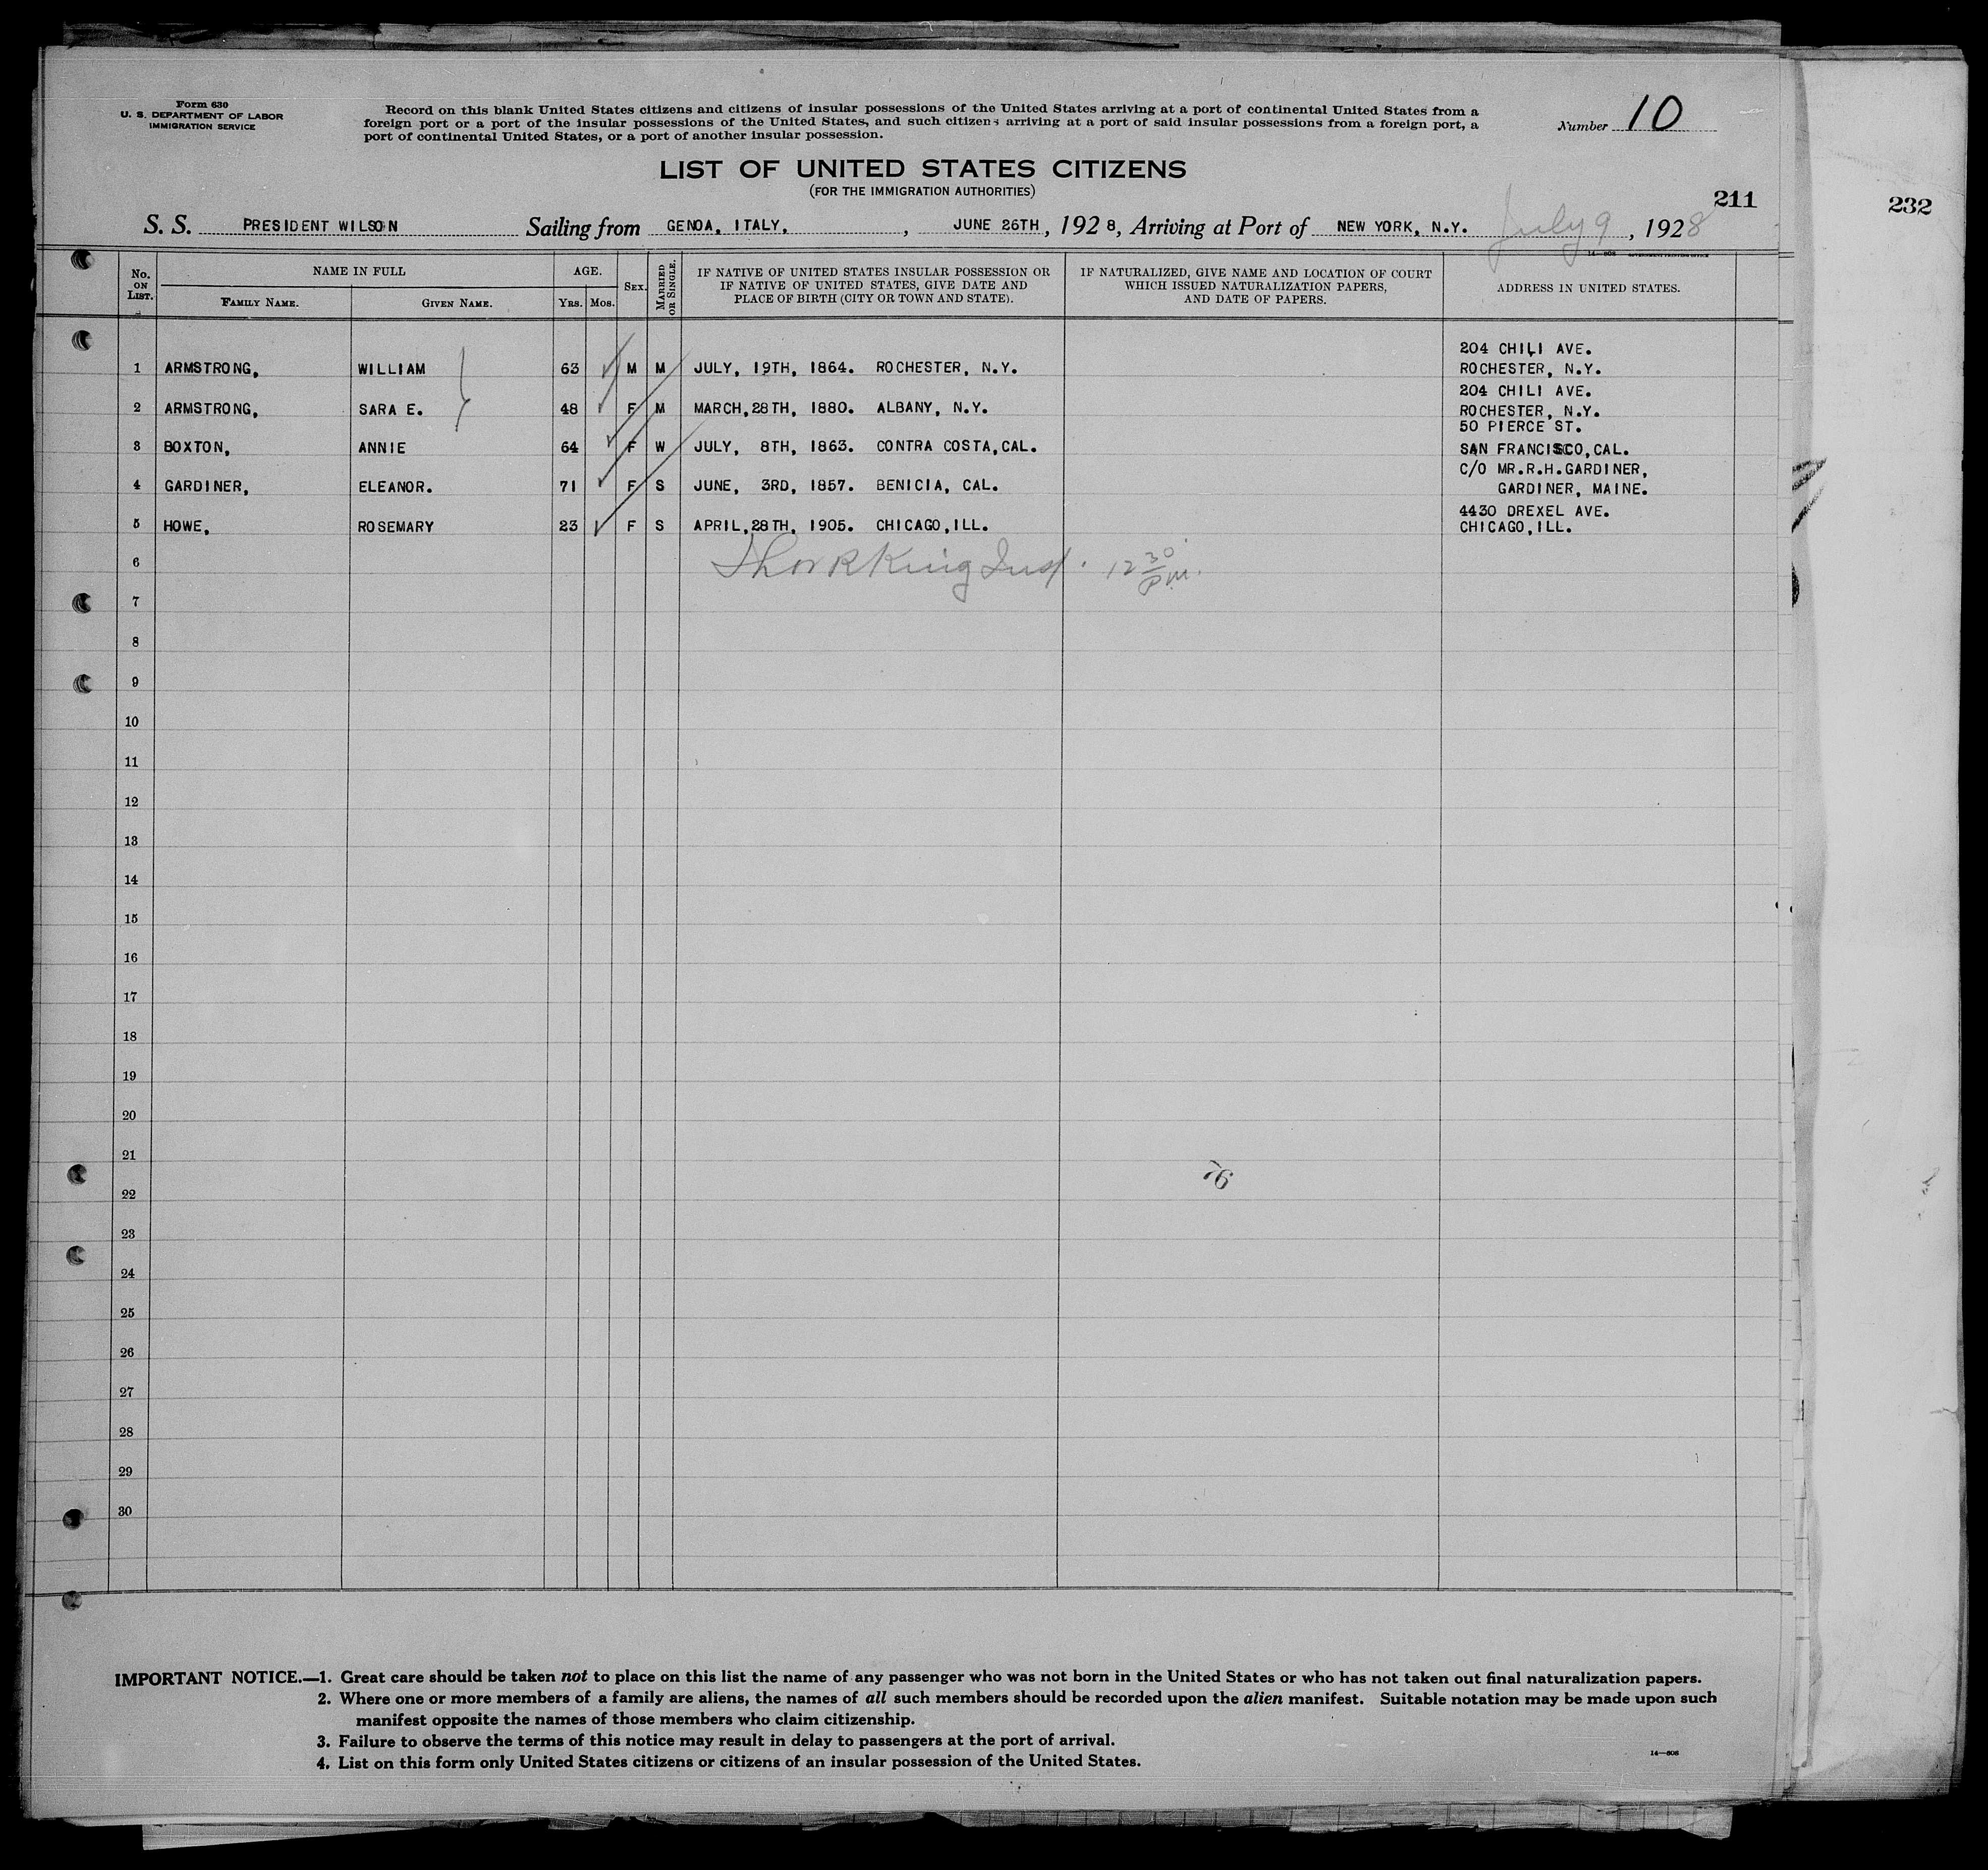 Form 630
U. S. DEPARTMENT OF LABOR
IMMIGRATION SERVICE
Record on this blank United States citizens and citizens of insular possessions of the United States arriving at a port of continental United States from a
foreign port or a port of the insular possessions of the United States, and such citizens arriving at a port of said insular possessions from a foreign port, a
port of continental United States, or a port of another insular possession.
Number 10
LIST OF UNITED STATES CITIZENS
(FOR THE IMMIGRATION AUTHORITIES)
211
232
S. S. PRESIDENT WILSON Sailing from GENOA, ITALY, , JUNE 26TH, 1928, Arriving at Port of NEW YORK, N.Y. July 9, 1928
14—808 GOVERNMENT PRINTING OFFICE
No. ON LIST. NAME IN FULL AGE. SEX. MARRIED OR SINGLE. IF NATIVE OF UNITED STATES INSULAR POSSESSION OR IF NATIVE OF UNITED STATES, GIVE DATE AND PLACE OF BIRTH (CITY OR TOWN AND STATE). IF NATURALIZED, GIVE NAME AND LOCATION OF COURT WHICH ISSUED NATURALIZATION PAPERS, AND DATE OF PAPERS. ADDRESS IN UNITED STATES.
FAMILY NAME. GIVEN NAME. YRS. MOS.
204 CHILI AVE.
1 ARMSTRONG, WILLIAM 63 M M JULY, 19TH, 1864. ROCHESTER, N.Y. ROCHESTER, N.Y.
204 CHILI AVE.
2 ARMSTRONG, SARA E. 48 F M MARCH,28TH, 1880. ALBANY, N.Y. ROCHESTER, N.Y.
50 PIERCE ST.
3 BOXTON, ANNIE 64 F W JULY, 8TH, 1863. CONTRA COSTA,CAL. SAN FRANCISCO,CAL.
C/O MR.R.H.GARDINER,
4 GARDINER, ELEANOR. 71 F S JUNE, 3RD, 1857. BENICIA, CAL. GARDINER, MAINE.
4430 DREXEL AVE.
5 HOWE, ROSEMARY 23 F S APRIL,28TH, 1905. CHICAGO,ILL. CHICAGO,ILL.
6 King 12 30 P.M.
7
8
9
10
11
12
13
14
15
16
17
18
19
20
21
76
22
23
24
25
26
27
28
29
30
IMPORTANT NOTICE.—1. Great care should be taken not to place on this list the name of any passenger who was not born in the United States or who has not taken out final naturalization papers.
2. Where one or more members of a family are aliens, the names of all such members should be recorded upon the alien manifest. Suitable notation may be made upon such
manifest opposite the names of those members who claim citizenship.
3. Failure to observe the terms of this notice may result in delay to passengers at the port of arrival.
4. List on this form only United States citizens or citizens of an insular possession of the United States.
14—808